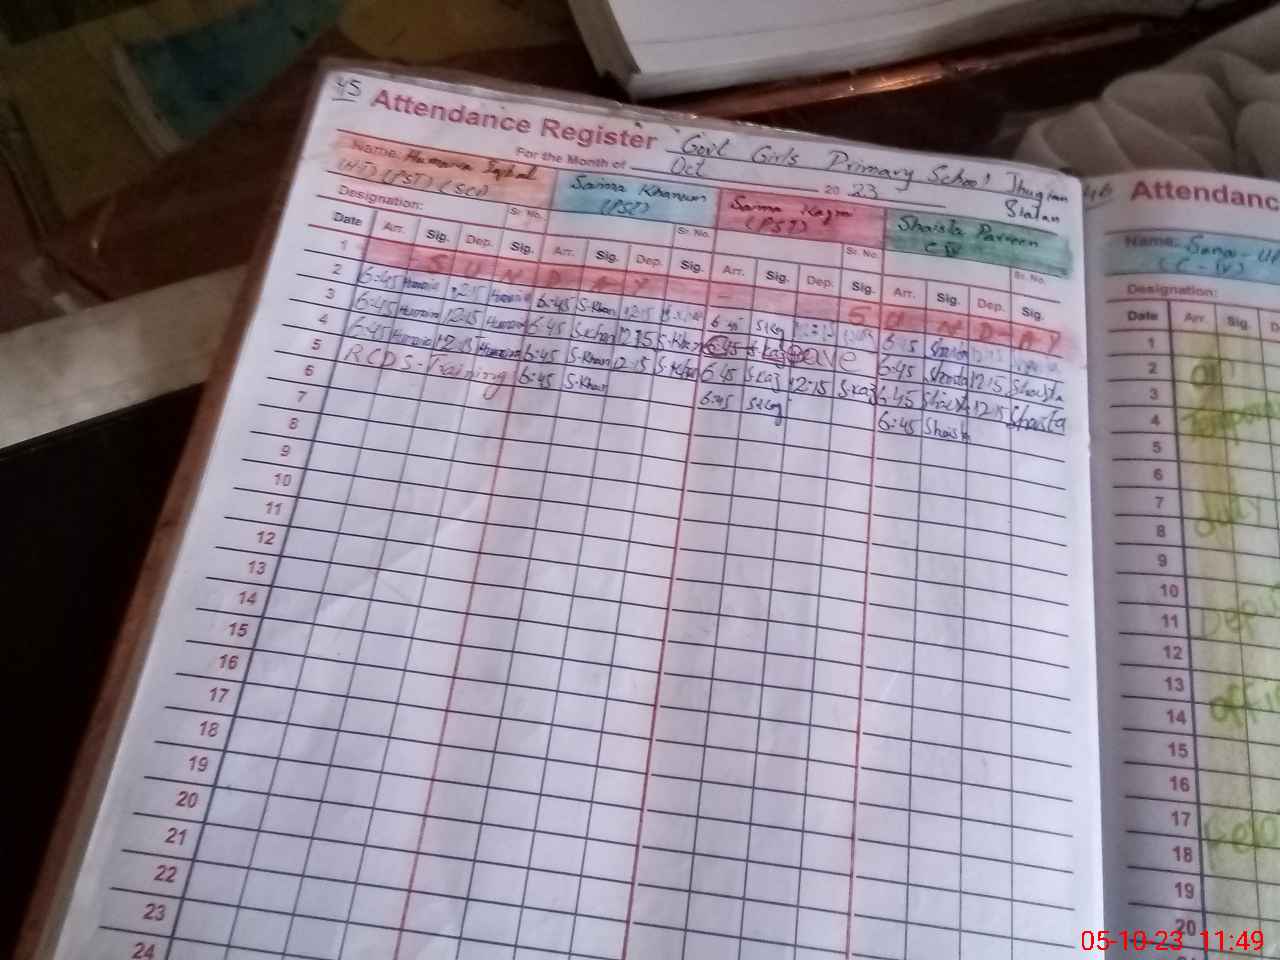 45 Attendance Register Govt Girls Primary School Jhugian
For the Month of Oct 2023 Sialan
Name: Humaira Iqbal Saima Khanum Saima Kazmi Shaista Parveen
(PST) (PST) (PST)
Designation: Sr. No. Sr. No. Sr. No. Sr. No.
Date Arr. Sig. Dep. Sig. Arr. Sig. Dep. Sig. Arr. Sig. Dep. Sig. Arr. Sig. Dep. Sig.
1 S U N D A Y S U N D A Y
2 6:45 Humaira 12:15 Humaira 6:45 S.Khan 12:15 6:45 S.Kaz 6:45 Shaista 12:15
3 6:45 Humaira 12:15 Humaira 6:45 S.Khan 12:15 S.Khan 6:45 S.Kaz Leave 6:45 Shaista 12:15 Shaista
4 6:45 Humaira 12:15 Humaira 6:45 S.Khan 12:15 S.Khan 6:45 S.Kaz 12:15 S.Kaz 6:45 Shaista 12:15 Shaista
5 RCDS-Training 6:45 S.Khan 6:45 S.Kaz 6:45 Shaista
6
7
8
9
10
11
12
13
14
15
16
17
18
19
20
21
22
23
24
46 Attendanc
Name: Sana
Designation:
Date Arr. Sig.
1
2
3
4
5
6
7
8
9
10
11
12
13
14
15
16
17
18
19
20
05-10-23 11:49